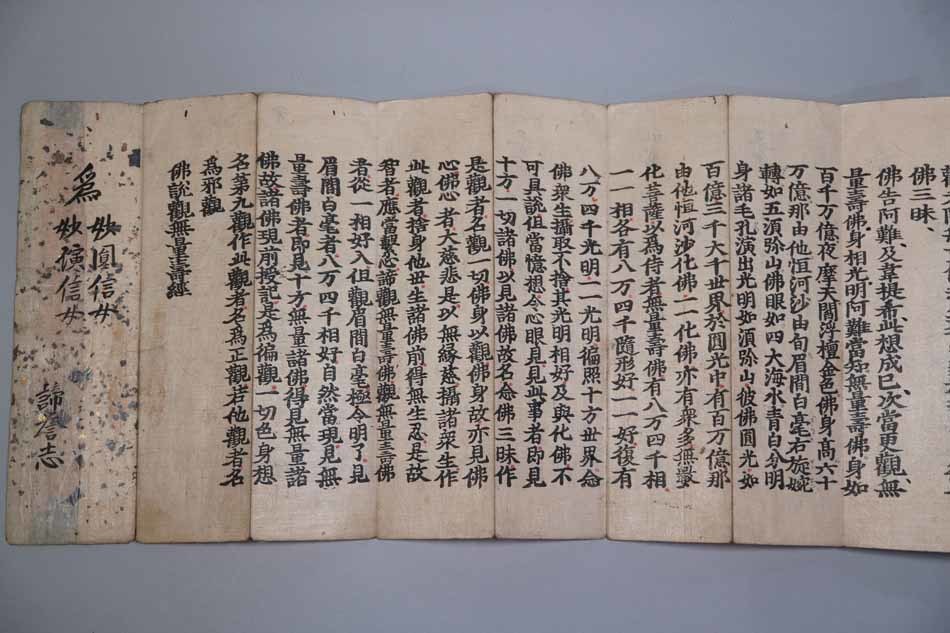 佛三昧
佛告阿難及韋提希此想成已次當更觀無
量壽佛身相光明阿難當知無量壽佛身如
百千万億夜摩天閻浮檀金色佛身高六十
万億那由他恒河沙由旬眉間白毫右旋婉
轉如五須弥山佛眼如四大海水青白分明
身諸毛孔演出光明如須弥山彼佛圓光如
百億三千大千世界於圓光中有百万億那
由他恒河沙化佛一一化佛亦有衆多無數
化菩薩以為侍者無量壽佛有八万四千相
一一相各有八万四千隨形好一一好復有
八万四千光明一一光明徧照十方世界念
佛衆生攝取不捨其光明相好及與化佛不
可具說但當憶想令心眼見見此事者即見
十方一切諸佛以見諸佛故名念佛三昧作
是觀者名觀一切佛身以觀佛身故亦見佛
心佛心者大慈悲是以無緣慈攝諸衆生作
此觀者捨身他世生諸佛前得無生忍是故
智者應當繫心諦觀無量壽佛觀無量壽佛
者從一相好入但觀眉間白毫極令明了見
眉間白毫者八万四千相好自然當現見無
量壽佛者即見十方無量諸佛得見無量諸
佛故諸佛現前授記是為徧觀一切色身想
名第九觀作此觀者名為正觀若他觀者名
為邪觀
佛說觀無量壽經
為
妙圓信女
信女
諦
志